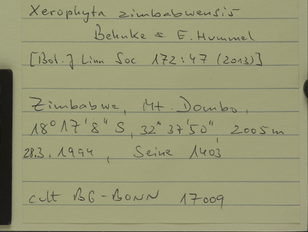 Xerophyta zimbabwensis
Behnke & E. Hummel
[Bot.] Linn Soc 172: 47 (2013)]
Zimbabwe, Mt. Dombo,
18° 17' 8" S, 32° 37' 50", 2005m
28.3. 1994, Seine 1403
cult BG-BONN 17009